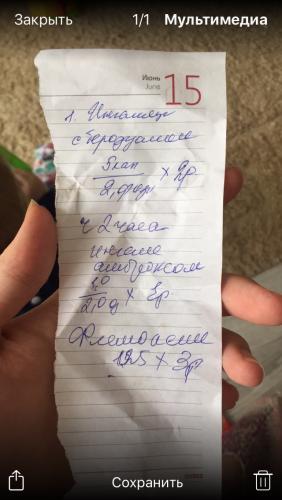 Закрыть 1/1 Мультимедиа
Июнь
June
15
1. Ингаляции
с беродуалом
5 кап
2,0 физр × 2р
ч 2 часа
ингал
амброксом
1,0
2,0 × 2р
Флемоксин
125 × 3р
Сохранить